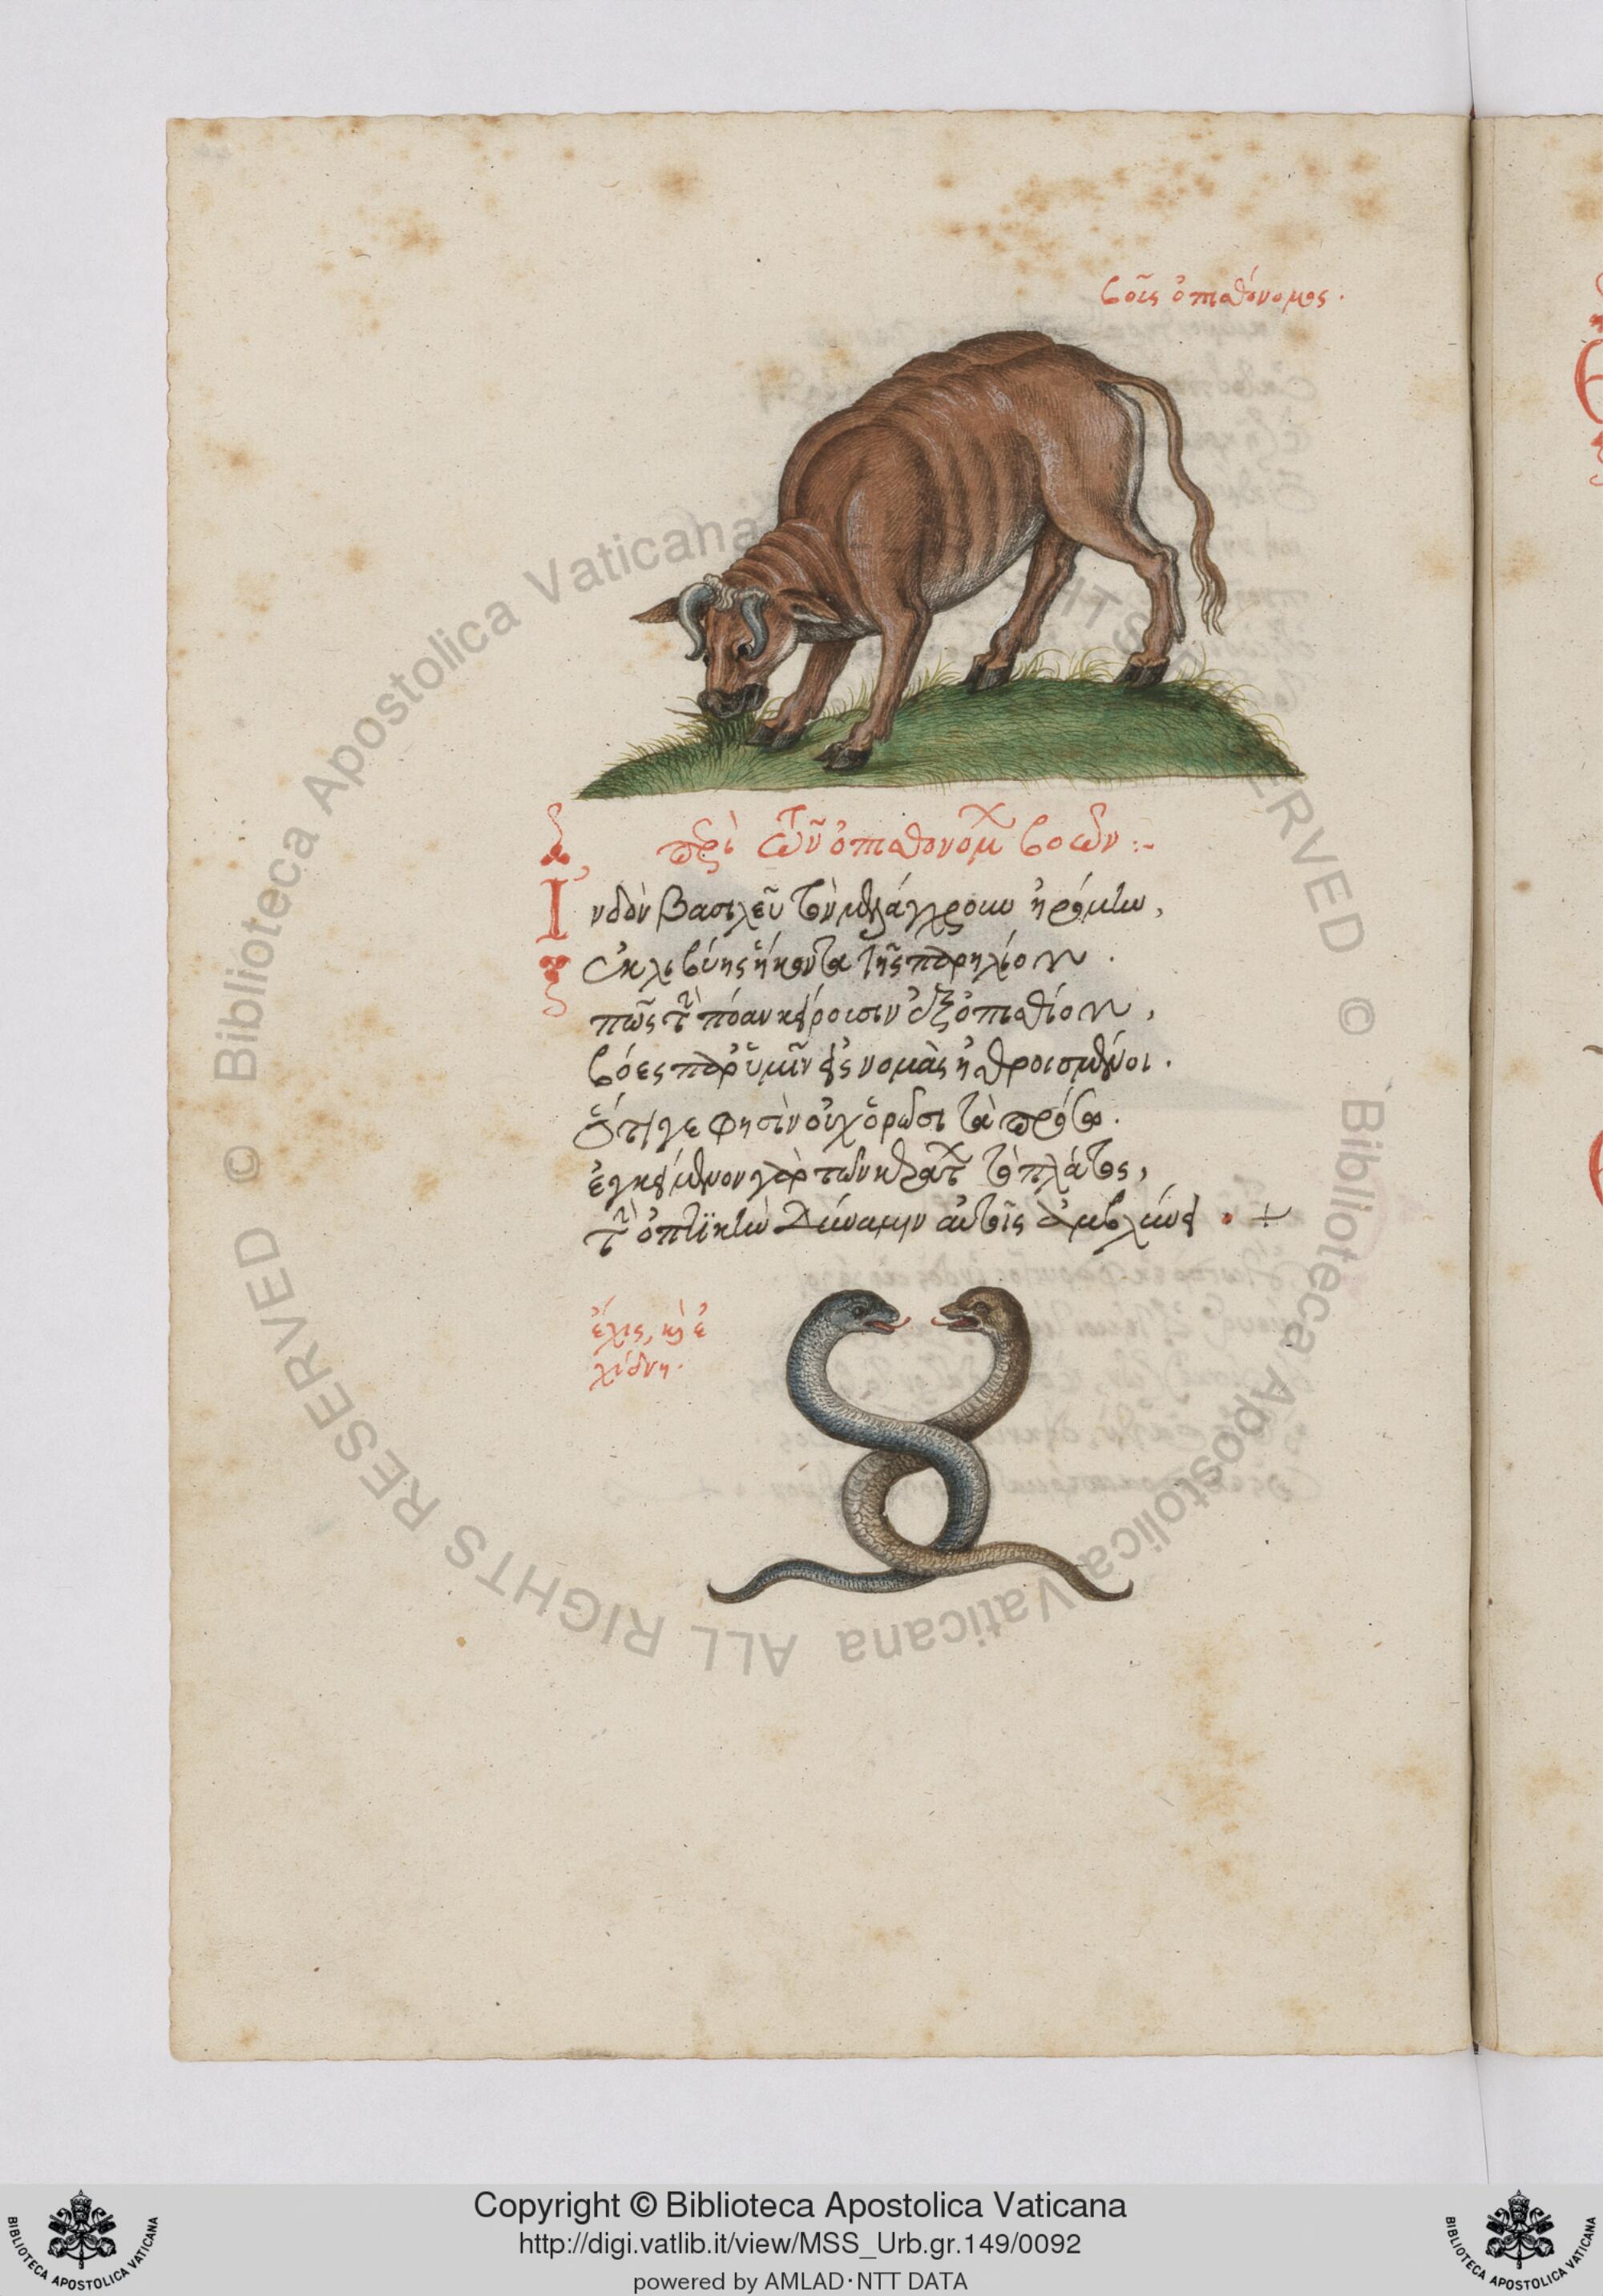 βοῦς ὀπισθόνομος.
περὶ τῶν ὀπισθονόμων βοῶν :-
Ἰνδὸν βασιλεῦ τὸν μελάγχρουν ἠρόμην,
ἐκ λιβύης ἥκοντα τῆς παρηλίου.
πῶς τὴν πόαν κείρουσιν ἐξοπισθίου,
βόες παρ' ὑμῖν εἰς νομὰς ἠθροισμένοι.
ὅτι γε φησὶν οὐχ ὁρῶσι τὰ πρόσω.
ἐγκείμενον γὰρ τῶν κεράτων τὸ πλάτος,
τὴν ὀπτικὴν δύναμιν αὐτοῖς ἀμβλύνει. +
ἔχις, καὶ ἐ
χίδνη.
© Biblioteca Apostolica Vaticana ALL RIGHTS RESERVED © Biblioteca Apostolica Vaticana ALL RIGHTS RESERVED
Copyright © Biblioteca Apostolica Vaticana
http://digi.vatlib.it/view/MSS_Urb.gr.149/0092
powered by AMLAD·NTT DATA
BIBLIOTECA APOSTOLICA VATICANA
BIBLIOTECA APOSTOLICA VATICANA